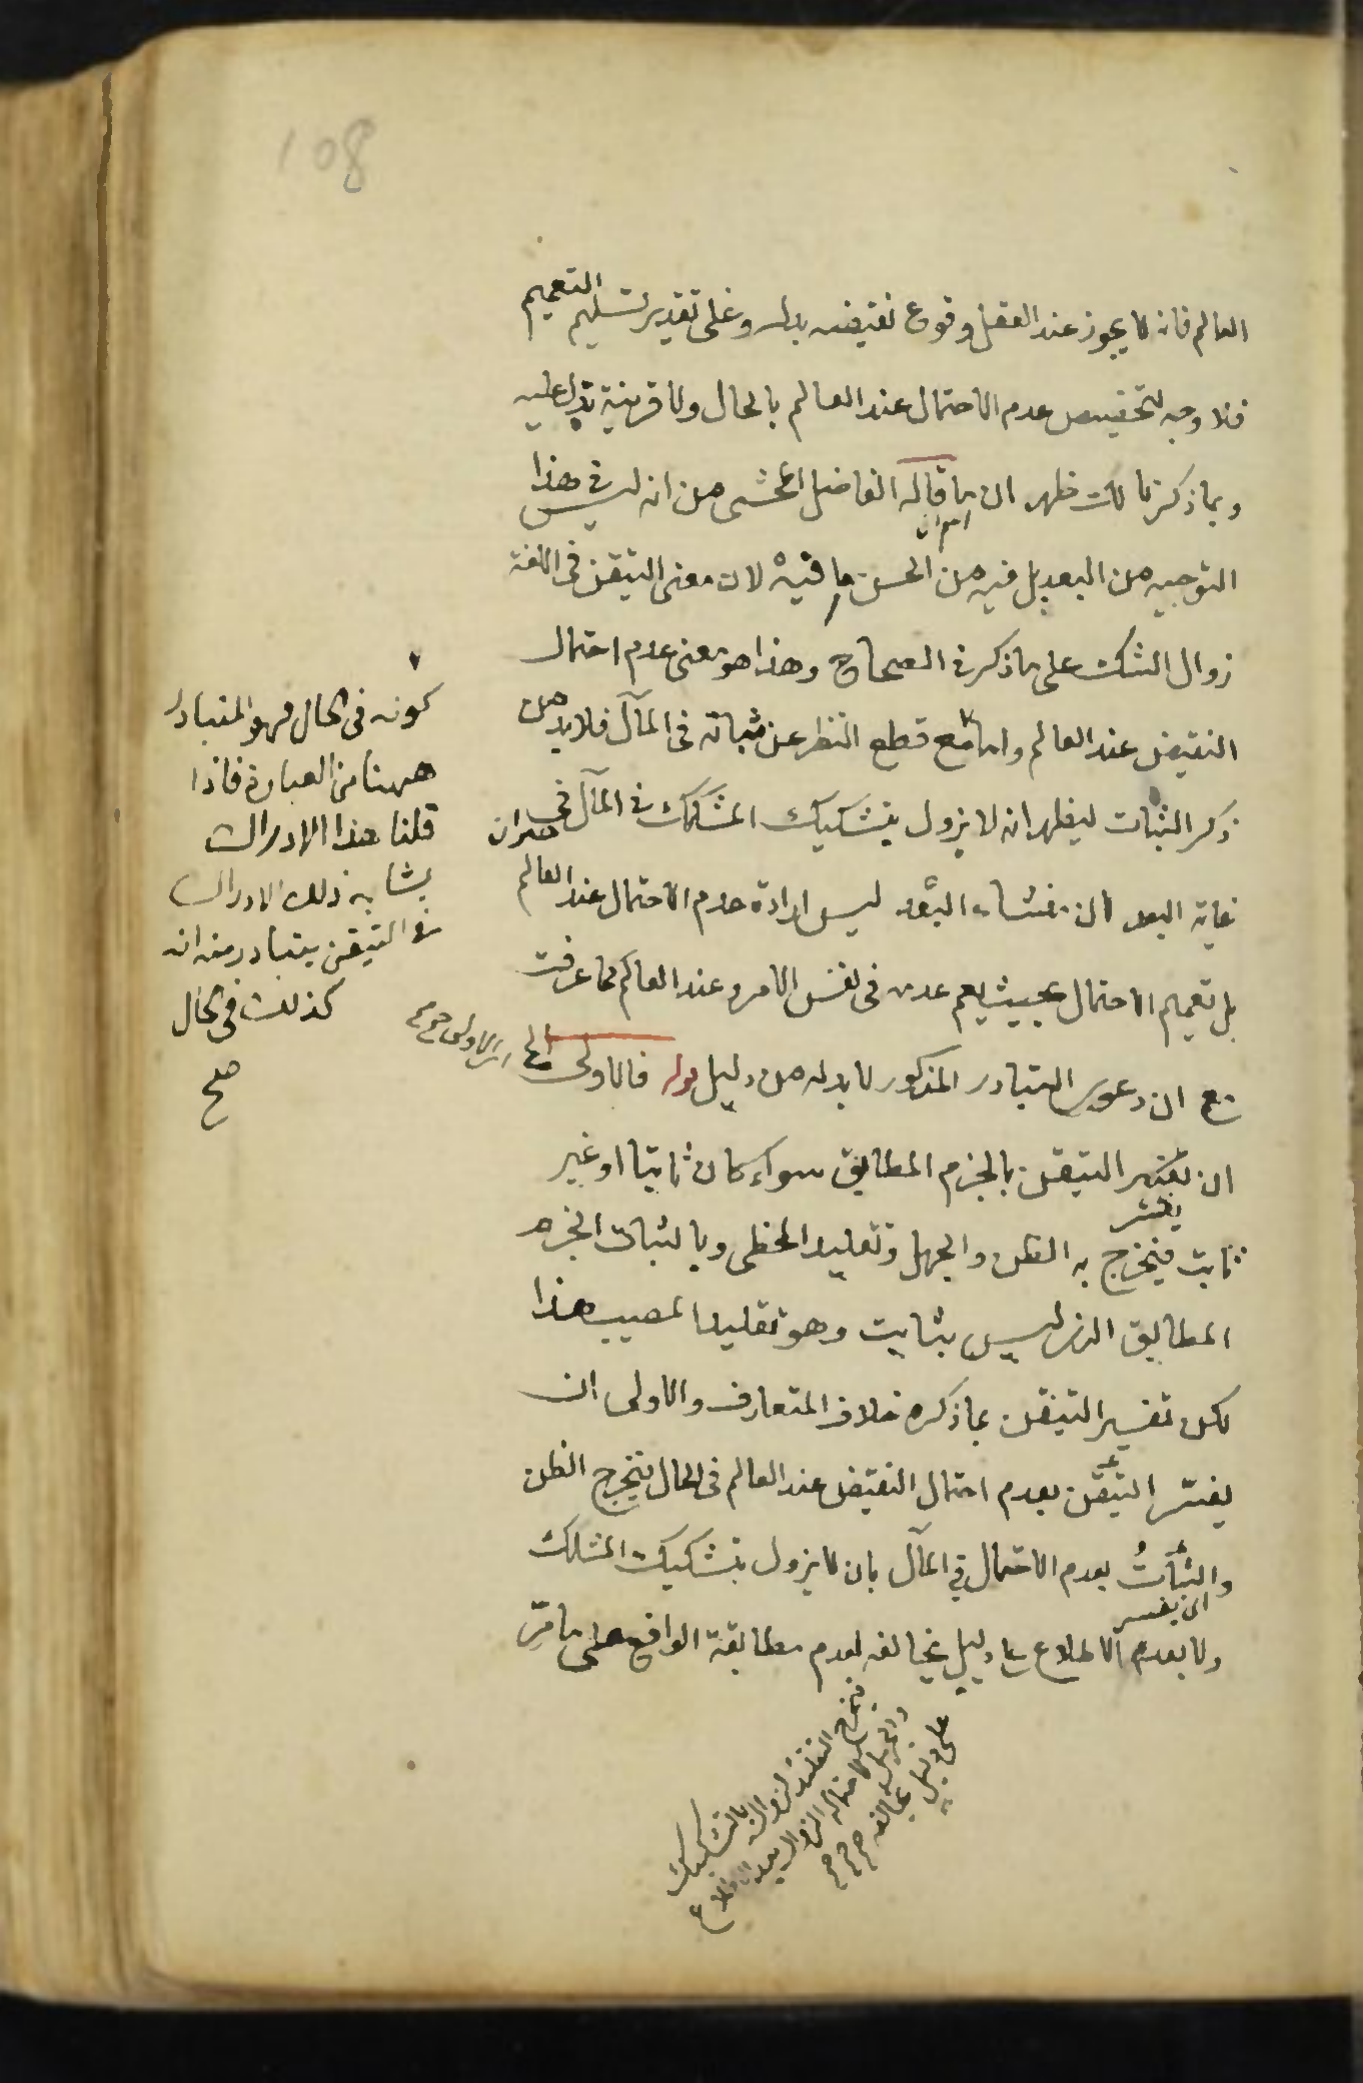 108
العالم فانه لا يجوز عند العقل وقوع نقيضه بدله وعلى تقدير تسليم التعميم
فلا وجه لتخصيص عدم الاحتمال عند العالم بالحال ولا قرينة تدل عليه
وبما ذكرنا لك ظهر ان ما قاله الفاضل المحشى من انه ليس في هذا
التوجيه من البعد بل فيه من الحسن ما فيه لان معنى التيقن فى اللغة
زوال الشك على ما ذكر في الصحاح وهذا هو معنى عدم احتمال
النقيض عند العالم واما مع قطع النظر عن ثباته فى المآل فلابد من
ذكر الثبات ليظهر انه لا يزول بتشكيك المشكك في المآل فى
غاية البعد لان منشاء البُعد ليس ارادة عدم الاحتمال عند العالم
بل تعميم الاحتمال بحيث يعم عدمه فى نفس الامر وعند العالم كما عرفت
مع ان دعوى التبادر المذكور لا بد له من دليل قوله فالاولى الخ
ان يفسر التيقن بالجزم المطابق سواء كان ثابتا او غير
يفسر
ثابت فيخرج به الظن والجهل وتقليد المخطى وبالثبات الجزم
المطابق الذى ليس بثابت وهو تقليد المصيب هذا
لكن تفسير التيقن بما ذكره خلاف المتعارف والاولى ان
يفسر التيقن بعدم احتمال النقيض عند العالم فى الحال فيخرج الظن
والثبات بعدم الاحتمال في المآل بان لا يزول بتشكيك المشكك
ان يفسر
ولا بعدم الاطلاع على دليل يخالفه لعدم مطابقة الواقع على ما مرّ
فيخرج التقليد لزواله بالتشكيك
والجهل لاحتمال الزوال بعد الاطلاع
على دليل يخالفه
كونه فى الحال فهو المتبادر
ههنا من العبارة فاذا
قلنا هذا الادراك
يشابه ذلك الادراك
في التيقن يتبادر منه انه
كذلك فى الحال
صح